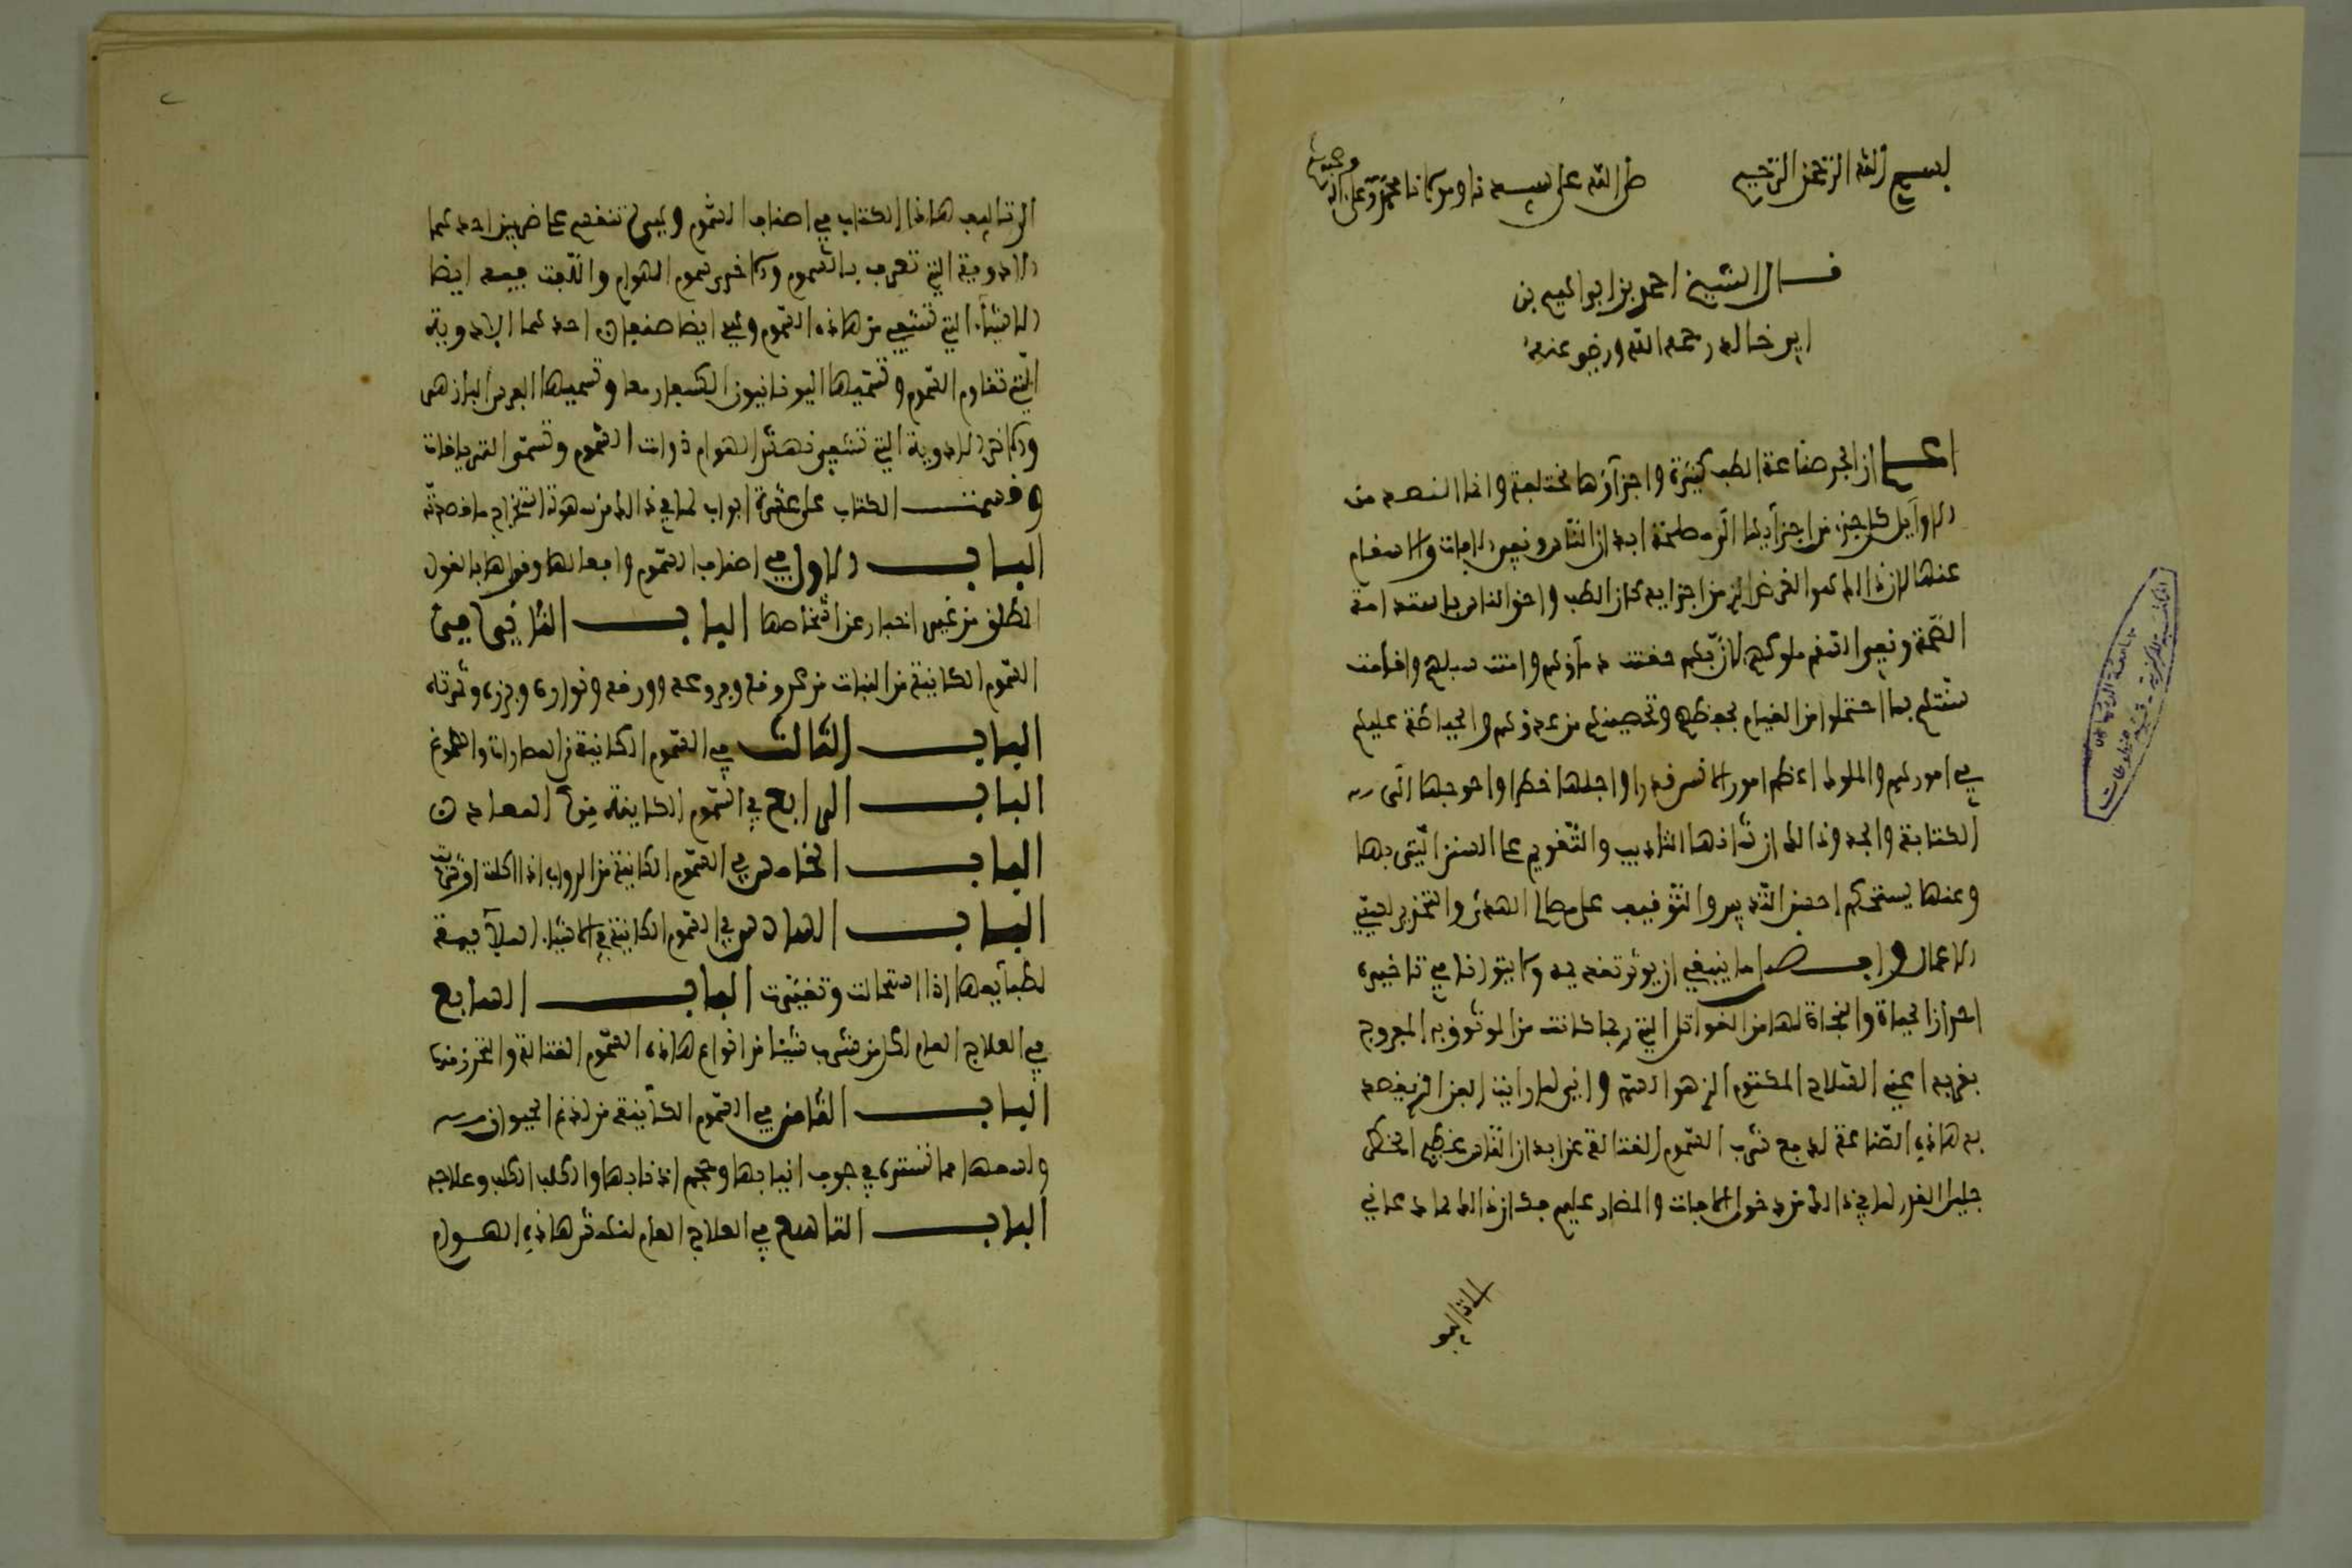 بسم الله الرحمن الرحيم صلى الله على سيدنا ومولانا محمد وعلى اله وصحبه
قال الشيخ احمد بن ابراهيم بن
ابي خالد رحمه الله ورضي عنه
اعلم ان اجزاء صناعة الطب كثيرة واجزاؤها مختلفة وانما القصد من
الاوايل كل جزء من اجزايها الى مصلحة ابدان الناس ونفي الافات والاسقام
عنها لان ذالك هو الغرض من اجزايه كان الطب واحق الناس باستدامة
الصحة ونفي السقم ملوكهم لان بهم حقنت دماؤهم وامنت سبلهم واقامت
سنتهم بما احتملوا من القيام بحفظهم وتحصينهم من عدوهم والحياطة عليهم
في امورهم والملوك اعظم امور الانس قدرا واجلها خطرا واحوجها الى
الكتابة والجد وذالك ان التاديب والتقويم على السنن التي بها
وعنها يستحكم احسن التدبير والتوفيق على مصالح الهدى والتحذير
الاعمال وافضل ما ينبغي ان يوثر تقديمه ولا يتوانا في تاخيره
احراز الحياة والنجاة لها من الغوائل التي ربما كانت من الموثوق به المعروج
بقربه اعني السلاح المكتوم الذي هو السم واني لما رايت الجزء الذي يقصد
به هاذه الصناعة لدفع شرب السموم القتالة عن ابدان الناس عظيم الخطر
جليل القدر لما في ذالك من دخول الافات والمضار عليهم فكان ذالك مما دعاني
الى تاليف
الى تاليف هاذا الكتاب في اصناف السموم وهي تنقسم على ضربين احدهما
الادوية التي تعرف بالسموم والاخر سموم الهوام والفت فيه ايضا
الاشياء التي تشفي من هاذه السموم وهي ايضا صنفان احدهما الادوية
التي تقاوم السموم وتسميها اليونانيون وتسميها الفرس البازهر
والاخر الادوية التي تشفي نهش الهوام ذوات السموم وتسمى الترياقات
وقسمت الكتاب على عشرة ابواب لما في ذالك من سهوة استخراج ما قصدته
الباب الاول في اصناف السموم وافعالها وقواها بالقول
المطلق من غير اخبار عن اشخاصها الباب الثاني في
السموم الكاينة من النبات من عروقه وفروعه وورقه ونواره وبزره وثمرته
الباب الثالث في السموم الكاينة من العصارات والصموغ
الباب الرابع في السموم الكاينة من المعادن
الباب الخامس في السموم الكاينة من الدواب اذا اكلت او شربت
الباب السادس في السموم الكاينة في الاشياء الملايمة
لطبايعها اذا استحالت وتغيرت الباب السابع
في العلاج العام لكل من شرب شيئا من انواع هاذه السموم القتالة والتحرز منها
الباب الثامن في السموم الكاينة من لدغ الحيوان
ولسعها مما تستره في جوف انيابها وحجم اذنابها والكلب الكلب وعلاجه
الباب التاسع في العلاج العام لنهش هاذه الهوام